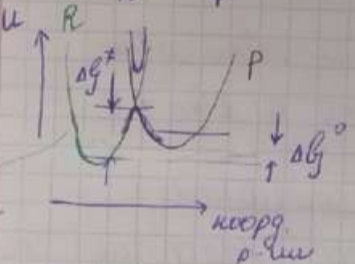 U
R
ΔG≠
P
ΔG°
коорд.
р-ции